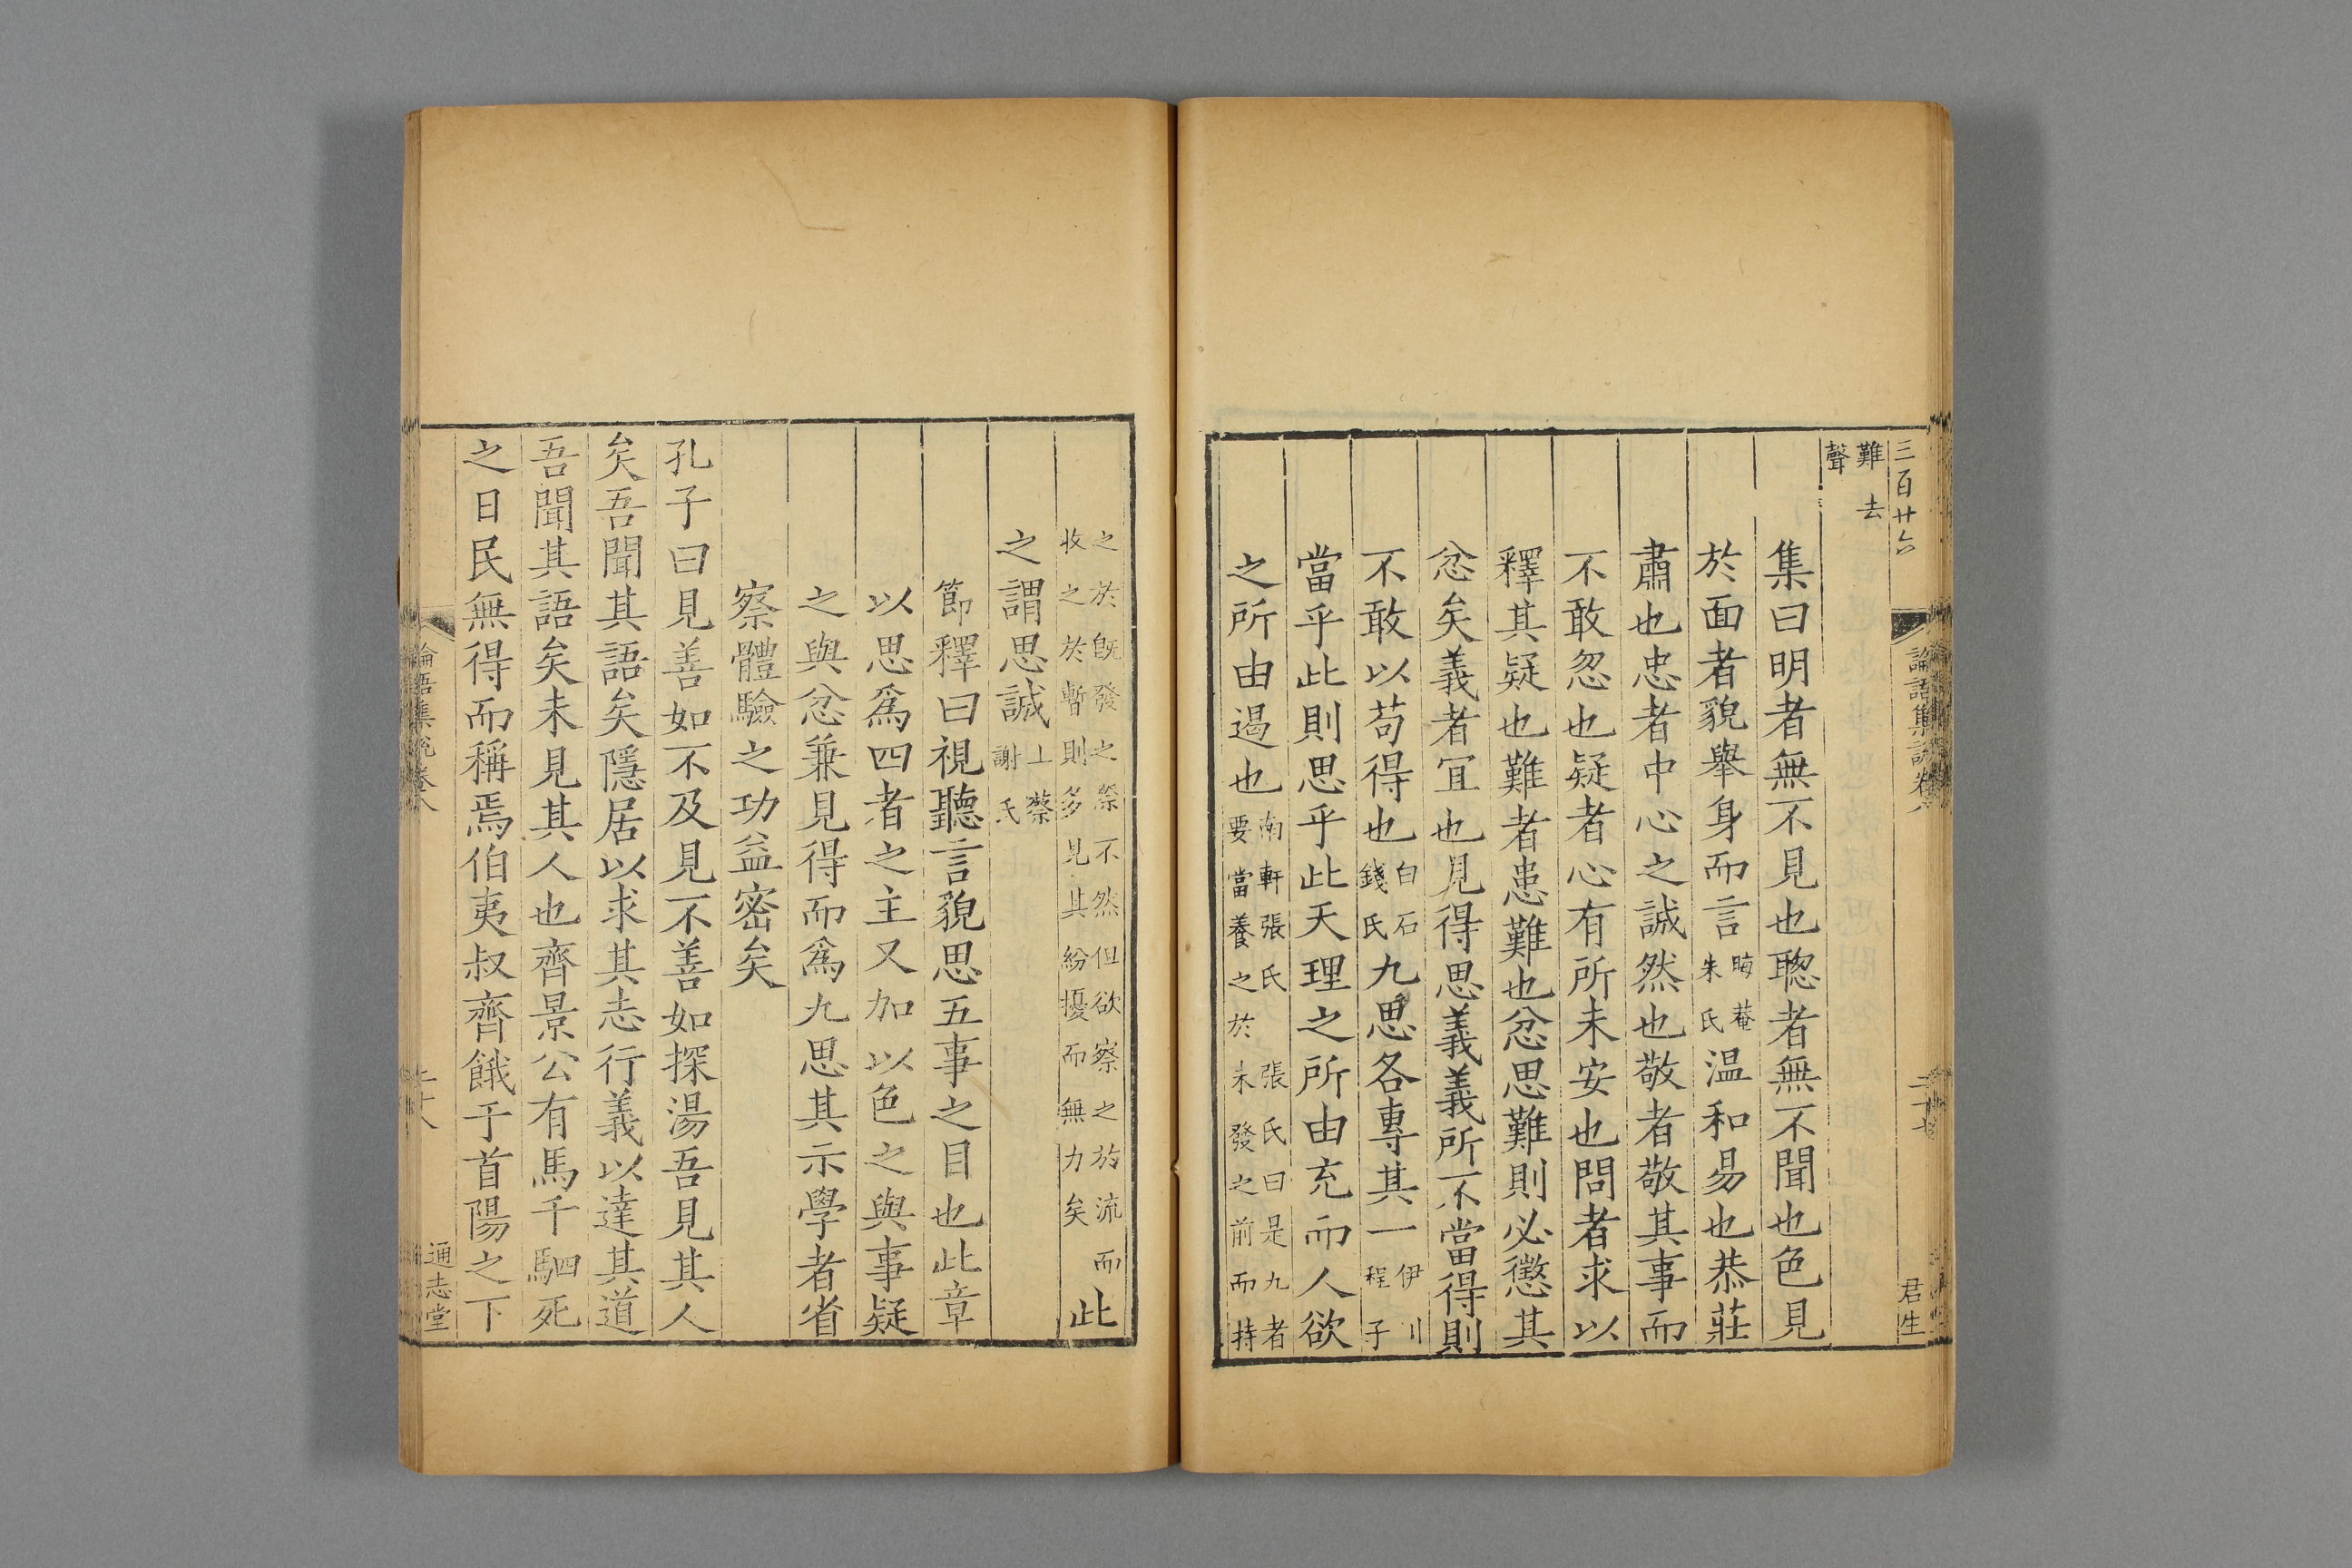 三百廿六
論語集說卷八
二十七
君生
難去
聲
集曰明者無不見也聰者無不聞也色見
於面者貌舉身而言
晦菴
朱氏
温和易也恭莊
肅也忠者中心之誠然也敬者敬其事而
不敢忽也疑者心有所未安也問者求以
釋其疑也難者患難也忿思難則必懲其
忿矣義者宜也見得思義義所不當得則
不敢以苟得也
白石
錢氏
九思各專其一
伊川
程子
當乎此則思乎此天理之所由充而人欲
之所由遏也
南軒張氏　張氏曰是九者
要當養之於未發之前而持
之於旣發之際不然但欲察之於流而
收之於暫則多見其紛擾而無力矣
此
之謂思誠
上蔡
謝氏
節釋曰視聽言貌思五事之目也此章
以思爲四者之主又加以色之與事疑
之與忿兼見得而爲九思其示學者省
察體驗之功益密矣
孔子曰見善如不及見不善如探湯吾見其人
矣吾聞其語矣隱居以求其志行義以達其道
吾聞其語矣未見其人也齊景公有馬千駟死
之日民無得而稱焉伯夷叔齊餓于首陽之下
論語集說卷八
通志堂